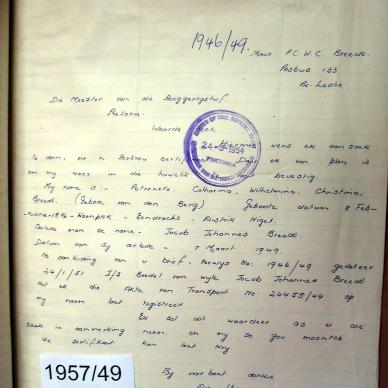 1946/49.
Mevr. P.C.W.C. Breedt.
Posbus 133
Die Meester van die Hooggeregshof
Pretoria.
Waarde Heer,
Hiermee wens ek aansoek
te doen, vir 'n
Daar ek van plan is
om my weer in die huwelik te bevestig.
My name is:- Petronella Catharina Wilhelmina Christina
Breedt. (Gebore van den Berg) Geboorte datum 8 Feb-
ruarie 1896 - - Eendracht - Distrik Nigel.
man de name:- Jacob Johannes Breedt.
Datum van Sy - 7 Maart 1949
Na aanleiding van u brief - No: 1946/49 gedateer
24/1/51 I/S Boedel van wyle Jacob Johannes Breedt
Het ek die Akte van Transport No: 24455/44 op
my naam laat registreer
Ek sal dit waardeer as u die
saak in aanmerking neem en my so gou moontlik
die sertifikaat kan laat kry
By voorbaat dankie
24-9-1954
PRETORIA
1957/49